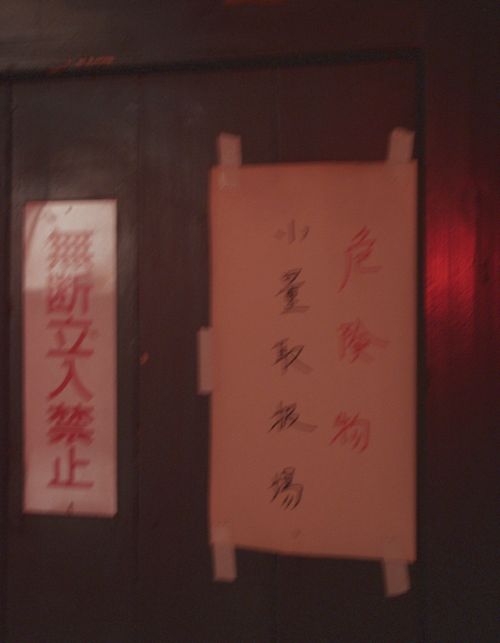 無断立入禁止
危険物
小量取扱場